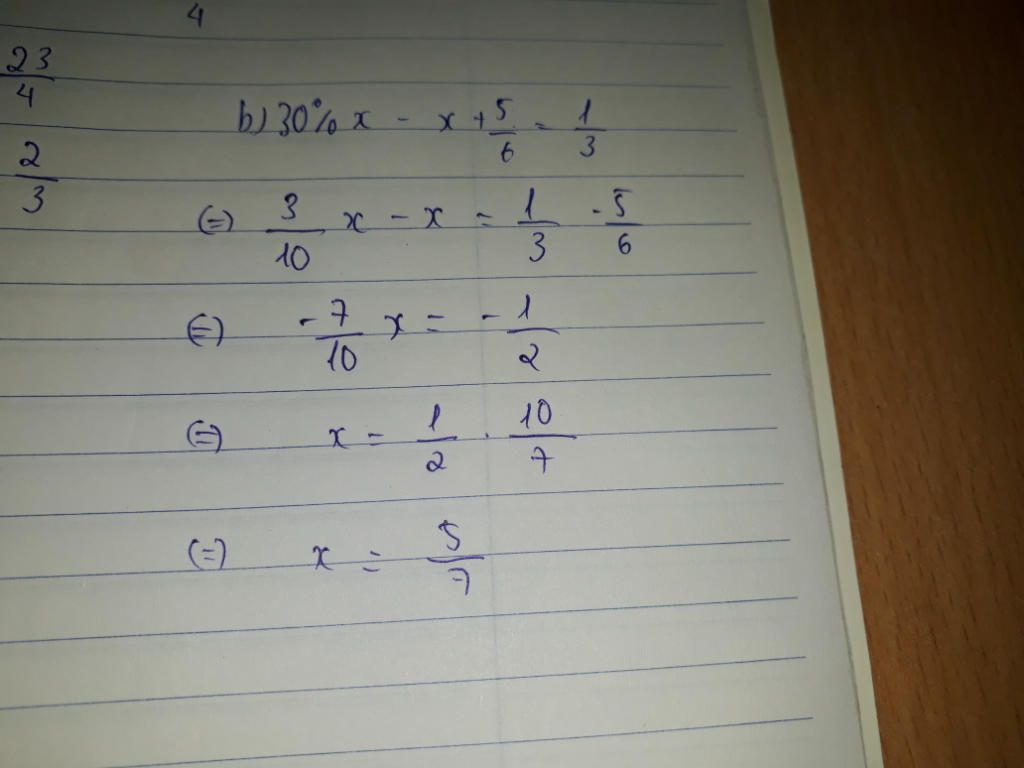 4
23/4
2/3
b) 30% x - x + 5/6 = 1/3
(=) 3/10 x - x = 1/3 - 5/6
(=) -7/10 x = -1/2
(=) x = 1/2 . 10/7
(=) x = 5/7